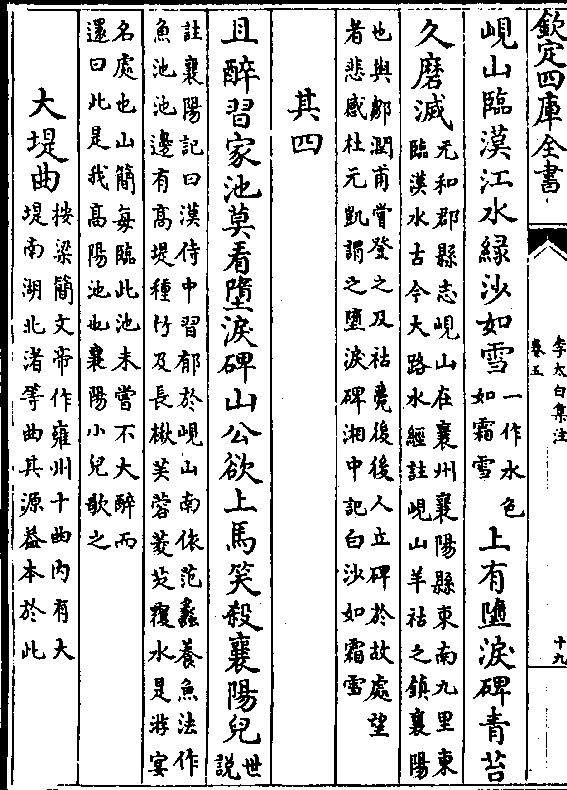 欽定四庫全書
李太白集注
卷五
十九
峴山臨漢江水緑沙如雪一作水色如霜雪上有墮淚碑青苔
久磨滅元和郡縣志峴山在襄州襄陽縣東南九里東
臨漢水古今大路水經註峴山羊祜之鎮襄陽
也與鄒潤甫嘗登之及祜薨後後人立碑於故處望
者悲感杜元凱謂之墮淚碑湘中記白沙如霜雪
其四
且醉習家池莫看墮淚碑山公欲上馬笑殺襄陽兒世說
註襄陽記曰漢侍中習郁於峴山南依范蠡養魚法作
魚池池邊有高堤種竹及長楸芙蓉菱芡覆水是游宴
名處也山簡每臨此池未嘗不大醉而
還曰此是我高陽池也襄陽小兒歌之
大堤曲按梁簡文帝作雍州十曲内有大
堤南湖北渚等曲其源葢本於此